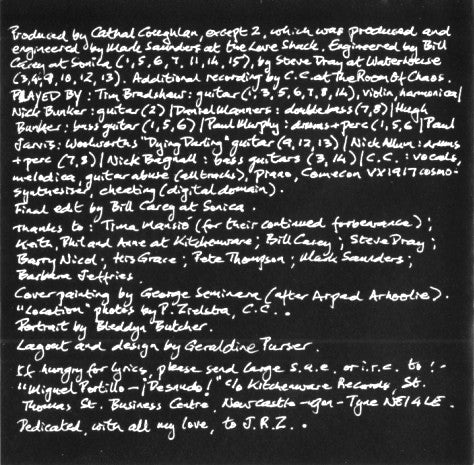 Produced by Cathal Coughlan, except 2, which was produced and
engineered by Mark Saunders at the Love Shack. Engineered by Bill
Carey at Sonica (1, 5, 6, 7, 11, 14, 15), by Steve Dray at Waterhouse
(3,4,9,10,12,13). Additional recording by C.C. at The Room Of Chaos.
PLAYED BY: Tim Bradshaw: guitar (1, 3, 5, 6, 7, 8, 14), violin, harmonica/
Nick Bunker: guitar (2) / Daniel Manners: double bass (7,8) / Hugh
Bunker: bass guitar (1, 5, 6) / Paul Murphy: drums + perc (1, 5, 6 / Paul
Jarvis: Woolworths "Dying Darling" guitar (9, 12, 13) / Nick Allum: drums
+ perc (7, 3) / Nick Bagnall: bass guitars (3, 14) / C.C.: vocals,
melodica, guitar abuse (all tracks), piano, Comecon VX1917 cosmo-
synthesiser, cheating (digital domain).
Final edit by Bill Carey at Sonica.
Thanks to: Tima Mansió (for their continued forbearance);
Keith, Phil and Anne at Kitchenware; Bill Carey; Steve Dray;
Barry Nicol; His Grace; Pete Thompson; Mark Saunders;
Barbara Jeffries.
Cover painting by George Seminera (after Arpad Arhoolie).
"Location" photos by P. Zielstra, C.C..
Portrait by Bleddyn Butcher.
Layout and design by Geraldine Purser.
If hungry for lyrics, please send large s.a.e. or i.r.c. to :-
"Miguel Portillo – ¡Desnudo!" c/o Kitchenware Records, St.
Thomas St. Business Centre, Newcastle-upon-Tyne NE1 4LE.
Dedicated, with all my love, to J.R.Z..